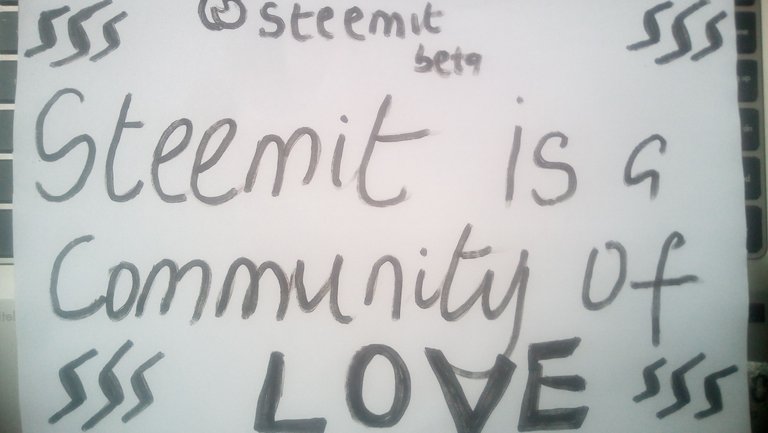 SSS steemit SSS
beta
Steemit is a
Community Of
SSS LOVE SSS